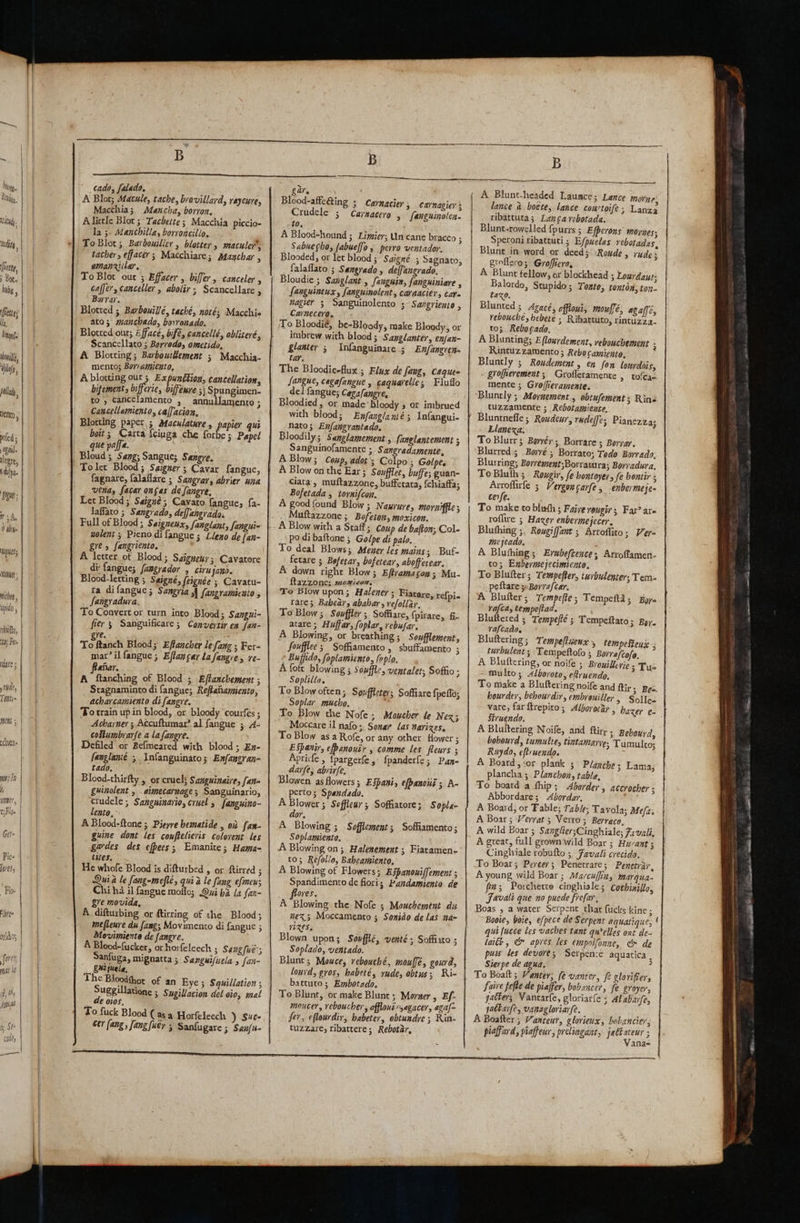 B
cado, salado.
A Blot; Macule, tache, brovillard, rayeure,
Macchia; Mancha, borron.
A little Blot; Tachette; Macchia piccio-
la; Manchilla, borroncillo.
To Blot; Barbouiller, blotter, maculer,
tacher, effacer; Macchiare; Manchar,
amanzillar.
To Blot out; Effacer, biffer, canceler,
casser, canceller, abolir; Scancellare,
Borrar.
Blotted; Barbouillé, taché, noté; Macchi-
ato; manchado, borronado.
Blotted out; Effacé, bifé, cancellé, obliteré,
Scancellato; Borrado, ometido.
A Blotting; Barbouillement; Macchia-
mento; Borramiento.
A blotting out; Expunction, cancellation,
bifement, bifferie, biffeure; Spungimen-
to, cancelamento, annullamento;
Cancellamiento, cassacion.
Blotting paper; Maculature, papier qui
boit; Carta sciuga che sorbe; Papel
que passa.
Bloud; Sang; Sangue; Sangre.
To let Blood; Saigner; Cavar sangue,
sagnare, salassare; Sangrar, abrier una
vena, sacar onças de sangre.
Let Blood; Saigné; Cavato sangue, sa-
lassato; Sangrado, dessangrado.
Full of Blood; Saigneux, sanglant, sangui-
nolent; Pieno di sangue; Lleno de san-
gre, sangriento.
A letter of Blood; Saigneur; Cavatore
di sangue; sangrador, cirujano.
Blood-letting; Saigné, seignée; Cavatu-
ra di sangue; Sangria, sangramiento,
sangradura.
To Convert or turn into Blood; Sangui-
fier; Sanguificare; Convertir en san-
gre.
To stanch Blood; Estancher le sang; Fer-
mar' il sangue; Estançar la sangre, re-
stañar.
A stanching of Blood; Estanchement;
Stagnaminto di sangue; Restañamiento,
acharcamiento di sangre.
To train up in blood, or bloody courses;
Acharner; Accustumar' al sangue; A-
costumbrarse a la sangre.
Defiled or Besmeared with blood; En-
sanglanté; Insanguinato; Ensangran-
tado.
Blood-thirsty, or cruel; Sanguinaire, san-
guinolent, aimecarnage; Sanguinario,
crudele; Sanguinario, cruel, sanguino-
lento.
A Blood-stone; Pierre hematide, où san-
guine dont les coustelieris colorent les
gardes des espees; Emanite; Hama-
tites.
He whose Blood is disturbed, or stirred;
Qui à le sang-meslé, qui à le sang esmeu;
Chi hà il sangue mosso; Qui hà la san-
gre movida.
A disturbing or stirring of the Blood;
mesleure du sang; Movimento di sangue;
Movimiento de sangre.
A Blood-sucker, or horseleech; Sangsuë;
Sansuga, mignatta; Sanguisuela, san-
guijuela.
The Bloodshot of an Eye; Squillation;
Suggillatione; Sugillacion del oio, mal
de oios.
To suck Blood (as a Horsleech) Suc-
cer sang, sangsuër; Sansugare; Sansu-
B
gàr.
Blood-affecting; Carnacier, carnagier;
Crudele; Carnacero, sanguinolen-
to.
A Blood-hound; Limier; Un cane bracco;
Sabuecho, sabuesso, perro ventador.
Blooded, or let blood; Saigné; Sagnato,
salassato; Sangrado, dessangrado.
Bloudie; Sanglant, sanguin, sanguiniare,
sanguintux, sanguinolent, carnacier, car-
nagier; Sanguinolento; Sangriento,
Carnecero.
To Bloodie, be-Bloody, make Bloody, or
imbrew with blood; Sanglanter, ensan-
glanter; Insanguinare; Ensangren-
tar.
The Bloodie-flux; Flux de sang, caque-
sangue, cagasangue, caquarelle; Flusso
del sangue; Cagasangre.
Bloodied, or made bloody, or imbrued
with blood; Ensanglanté; Insangui-
nato; Ensangrantado.
Bloodily; Sanglamement, sanglantement;
Sanguinosamente; Sangradamente.
A Blow; Coup, ados; Colpo; Golpe.
A Blow on the Ear; Soufflet, buffe; guan-
ciata, mustazzone, buffetata, schiaffa;
Bofetada, torniscon.
A good sound Blow; Navrure, mornifle;
Mustazzone; Bofeton, moxicon.
A Blow with a Staff; Coup de baston; Col-
po di bastone; Golpe di palo.
To deal Blows; Mener les mains; Buf-
fetare; Bofetar, bofetear, abofetear.
A down right Blow; Eframason; Mu-
stazzone; moxicon.
To Blow upon; Halener; Fiatare, respi-
rare; Babeàr, ababar, resollàr.
To Blow; Souffler; Soffiare, spirare, fi-
atare; Huffar, soplar, rebufar.
A Blowing, or breathing; Soufflement,
soufflee; Soffiamento, sbuffamento;
Buffido, soplamiento, soplo.
A soft blowing; Souffle, ventalet; Soffio;
Soplillo.
To Blow often; Souffleter; Soffiare spesso;
Soplar mucho.
To Blow the Nose; Moucher le Nez;
Moccare il naso; Sonar las narizes.
To Blow as a Rose, or any other flower;
Espanir, espanouir, comme les fleurs;
Aprirse, spargerse, spanderse; Pan-
darse, abrirse.
Blowen as flowers; Espani, espanouï; A-
perto; Spandado.
A Blower; Souffleur; Soffiatore; Sopla-
dor.
A Blowing; Sofflement; Soffiamento;
Soplamiento.
A Blowing on; Halenement; Fiatamen-
to; Resollo, Babeamiento.
A Blowing of Flowers; Espanouissement;
Spandimento de fiori; Pandamiento de
flores.
A Blowing the Nose; Mouchement du
nez; Moccamento; Sonido de las na-
rizes.
Blown upon; Soufflé, venté; Soffiato;
Soplado, ventado.
Blunt; Mouce, rebouché, moussé, gourd,
lourd, gros, habeté, rude, obtus; Ri-
battuto; Embotado.
To Blunt, or make Blunt; Morner, Es-
moucer, reboucher, affloui-, agacer, agas-
ser, estourdir, habeter, obtundre; Rin-
tuzzare, ribattere; Rebotàr,
B
A Blunt-headed Launce; Lance morne,
lance à boete, lance courtoise; Lanza
ribattuta; Lança rebotada.
Blunt-rowelled spurrs; Esperons mornes;
Speroni ribattuti; Espuelas rebotadas.
Blunt in word or deed; Roude, rude;
grossero; Grossiero.
A Blunt fellow, or blockhead; Lourdaut;
Balordo, Stupido; Tonto, tontòn, ton-
tazo.
Blunted; Agacé, effloui, moussé, agassé,
rebouché, hebete, Ribattuto, rintuzza-
to; Reboçado.
A Blunting; Estourdement, rebouchement;
Rintuzzamento; Reboçamiento.
Bluntly; Roudement, en son lourdois,
grossierement; Grossetamente, tosca-
mente; Grossieramente.
Bluntly; Mornement, obtusement; Rin-
tuzzamente; Rebotamiente.
Bluntnesse; Roudeur, rudesse; Pianezza;
Llaneza.
To Blurr; Borrér; Borrare; Borrar.
Blurred; Borré; Borrato; Todo Borrado.
Blurring; Borrement; Borratura; Borradura.
To Blush; Rougir, se hontoyer, se hontir;
Arrossirse; Vergonçarse, enbermeje-
cerse.
To make to blush; Faire rougir; Far' ar-
rossire; Hazer enbermejecer.
Blushing; Rougissant; Arrossito; Ver-
mejeado.
A Blushing; Erubescence; Arrossamen-
to; Enbermejecimiento.
To Bluster; Tempester, turbulenter; Tem-
pestare; Borrascar.
A Bluster; Tempeste; Tempestà; Bor-
rasca, tempestad.
Blustered; Tempesté; Tempestato; Bor-
rascado.
Blustering; Tempestueux, tempesteux,
turbulent; Tempestoso; Borrascoso.
A Blustering, or noise; Brouillerie; Tu-
multo; Alboroto, estruendo.
To make a Blustering noise and stir; Be-
hourder, behourdir, embrouiller, Solle-
vare, far strepito; Alborotàr, hazer e-
struendo.
A Blustering Noise, and stirr; Behourd,
bohourd, tumulte, tintamarre; Tumulto;
Ruydo, estruendo.
A Board, or plank; Planche; Lama,
plancha; Planchon, tabla.
To board a ship; Aborder, accrocher;
Abbordare; Abordar.
A Board, or Table; Table; Tavola; Mesa.
A Boar; Verrat; Verro; Berraco.
A wild Boar; Sanglier; Cinghiale; Javali.
A great, full grown wild Boar; Hurant;
Cinghiale robusto; Javali crecido.
To Boar; Percer; Penetrare; Penetràr.
A young wild Boar; Marcassin, marqua-
sin; Porchette cinghiale; Cothinillo,
Javali que no puede fresar.
Boas, a water Serpent that sucks kine;
Booie, boie, espece de Serpent aquatique,
qui succe les vaches tant qu'elles ont de-
laict, & apres les empoisonne, & de
puis les devore; Serpente aquatica;
Sierpe de agua.
To Boast; Vanter; se vanter, se glorifier,
faire feste de piaffer, bobancer, se groyer,
jacter; Vantarse, gloriarse; Alabarse,
jactarse, vanagloriarse.
A Boaster; Vanteur, glorieux, bobancier,
piaffard, piaffeur, prelingant, jactateur;
Vana-